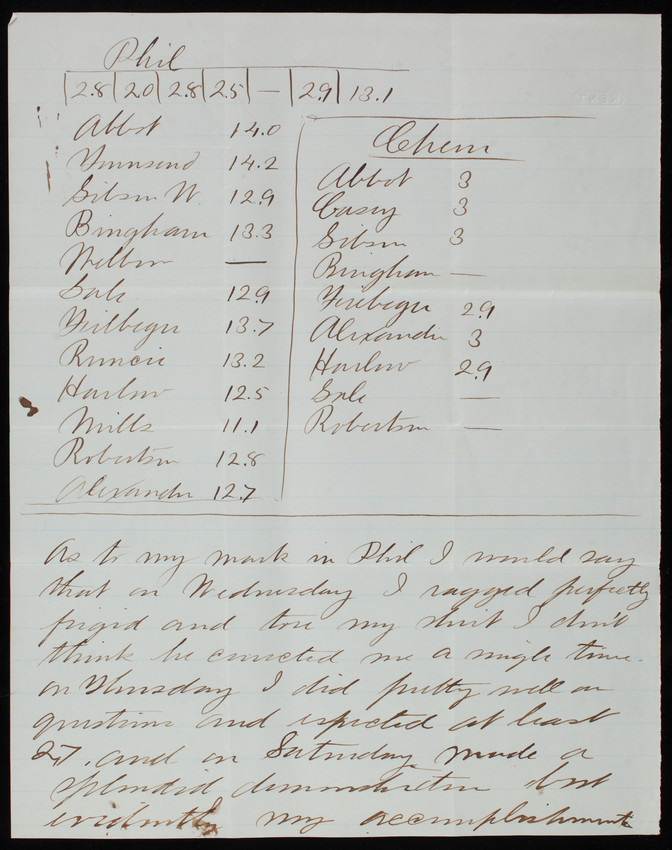 Phil
2.8 | 2.0 | 2.8 | 2.5 | — | 2.9 | 13.1
Abbot 14.0
Townsend 14.2
Gibson W. 12.9
Bingham 13.3
Wilson —
Gale 12.9
Firebegu 13.7
Runcie 13.2
Harlow 12.5
Mills 11.1
Robertson 12.8
Alexander 12.7
Chem
Abbot 3
Casey 3
Gibson 3
Bingham —
Firebegu 2.9
Alexander 3
Harlow 2.9
Gale —
Robertson —
As to my mark in Phil I would say
that on Wednesday I ragged perfectly
frigid and tore my shirt I don't
think he corrected me a single time.
on Thursday I did pretty well on
questions and expected at least
2.7, and on Saturday made a
splendid demonstration but
evidently my accomplishments